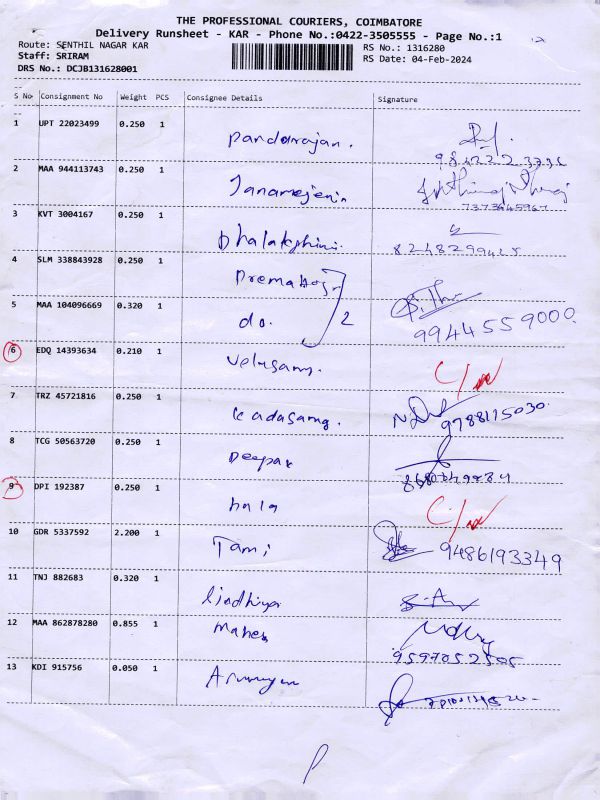 THE PROFESSIONAL COURIERS, COIMBATORE
Delivery Runsheet - KAR - Phone No.:0422-3505555 - Page No.:1
Route: SENTHIL NAGAR KAR
RS No.: 1316280
Staff: SRIRAM
RS Date: 04-Feb-2024
DRS No.: DCJB131628001
S No Consignment No Weight PCS Consignee Details Signature
1 UPT 22023499 0.250 1 Pandarajan.
2 MAA 944113743 0.250 1
7373645967
3 KVT 3004167 0.250 1
4 SLM 338843928 0.250 1
5 MAA 104096669 0.320 1 do. 2
9944559000
6 EDQ 14393634 0.210 1 Velusamy.
7 TRZ 45721816 0.250 1 Kadasamy. 9788115030
8 TCG 50563720 0.250 1 Deepak
9 DPI 192387 0.250 1 bala
10 GDR 5337592 2.200 1 Tami 9486193349
11 TNJ 882683 0.320 1
12 MAA 862878280 0.855 1 Mahes
9597052505
13 KDI 915756 0.050 1